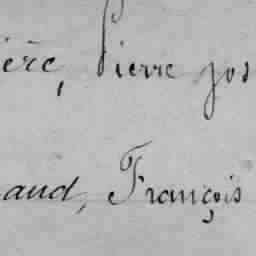 ière, Pierre jos
aud, François